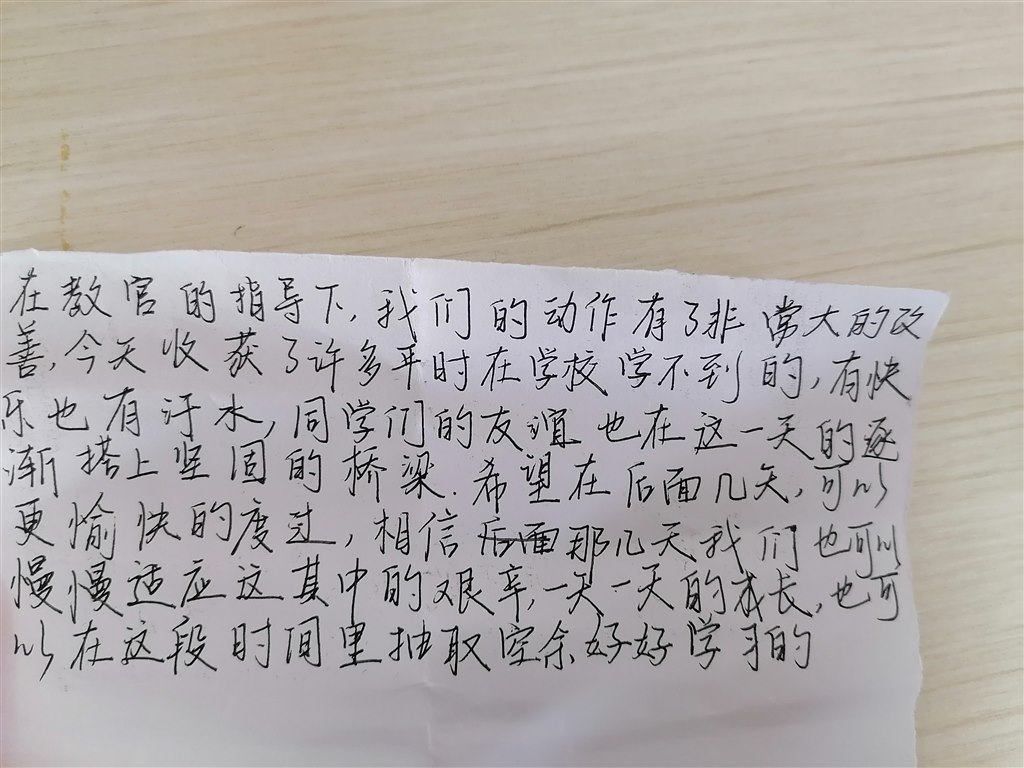 在教官的指导下,我们的动作有了非常大的改
善,今天收获了许多平时在学校学不到的,有快
乐也有汗水,同学们的友谊也在这一天的逐
渐搭上坚固的桥梁.希望在后面几天,可以
更愉快的度过,相信后面那几天我们也可以
慢慢适应这其中的艰辛,一天一天的成长,也可
以在这段时间里抽取空余好好学习的